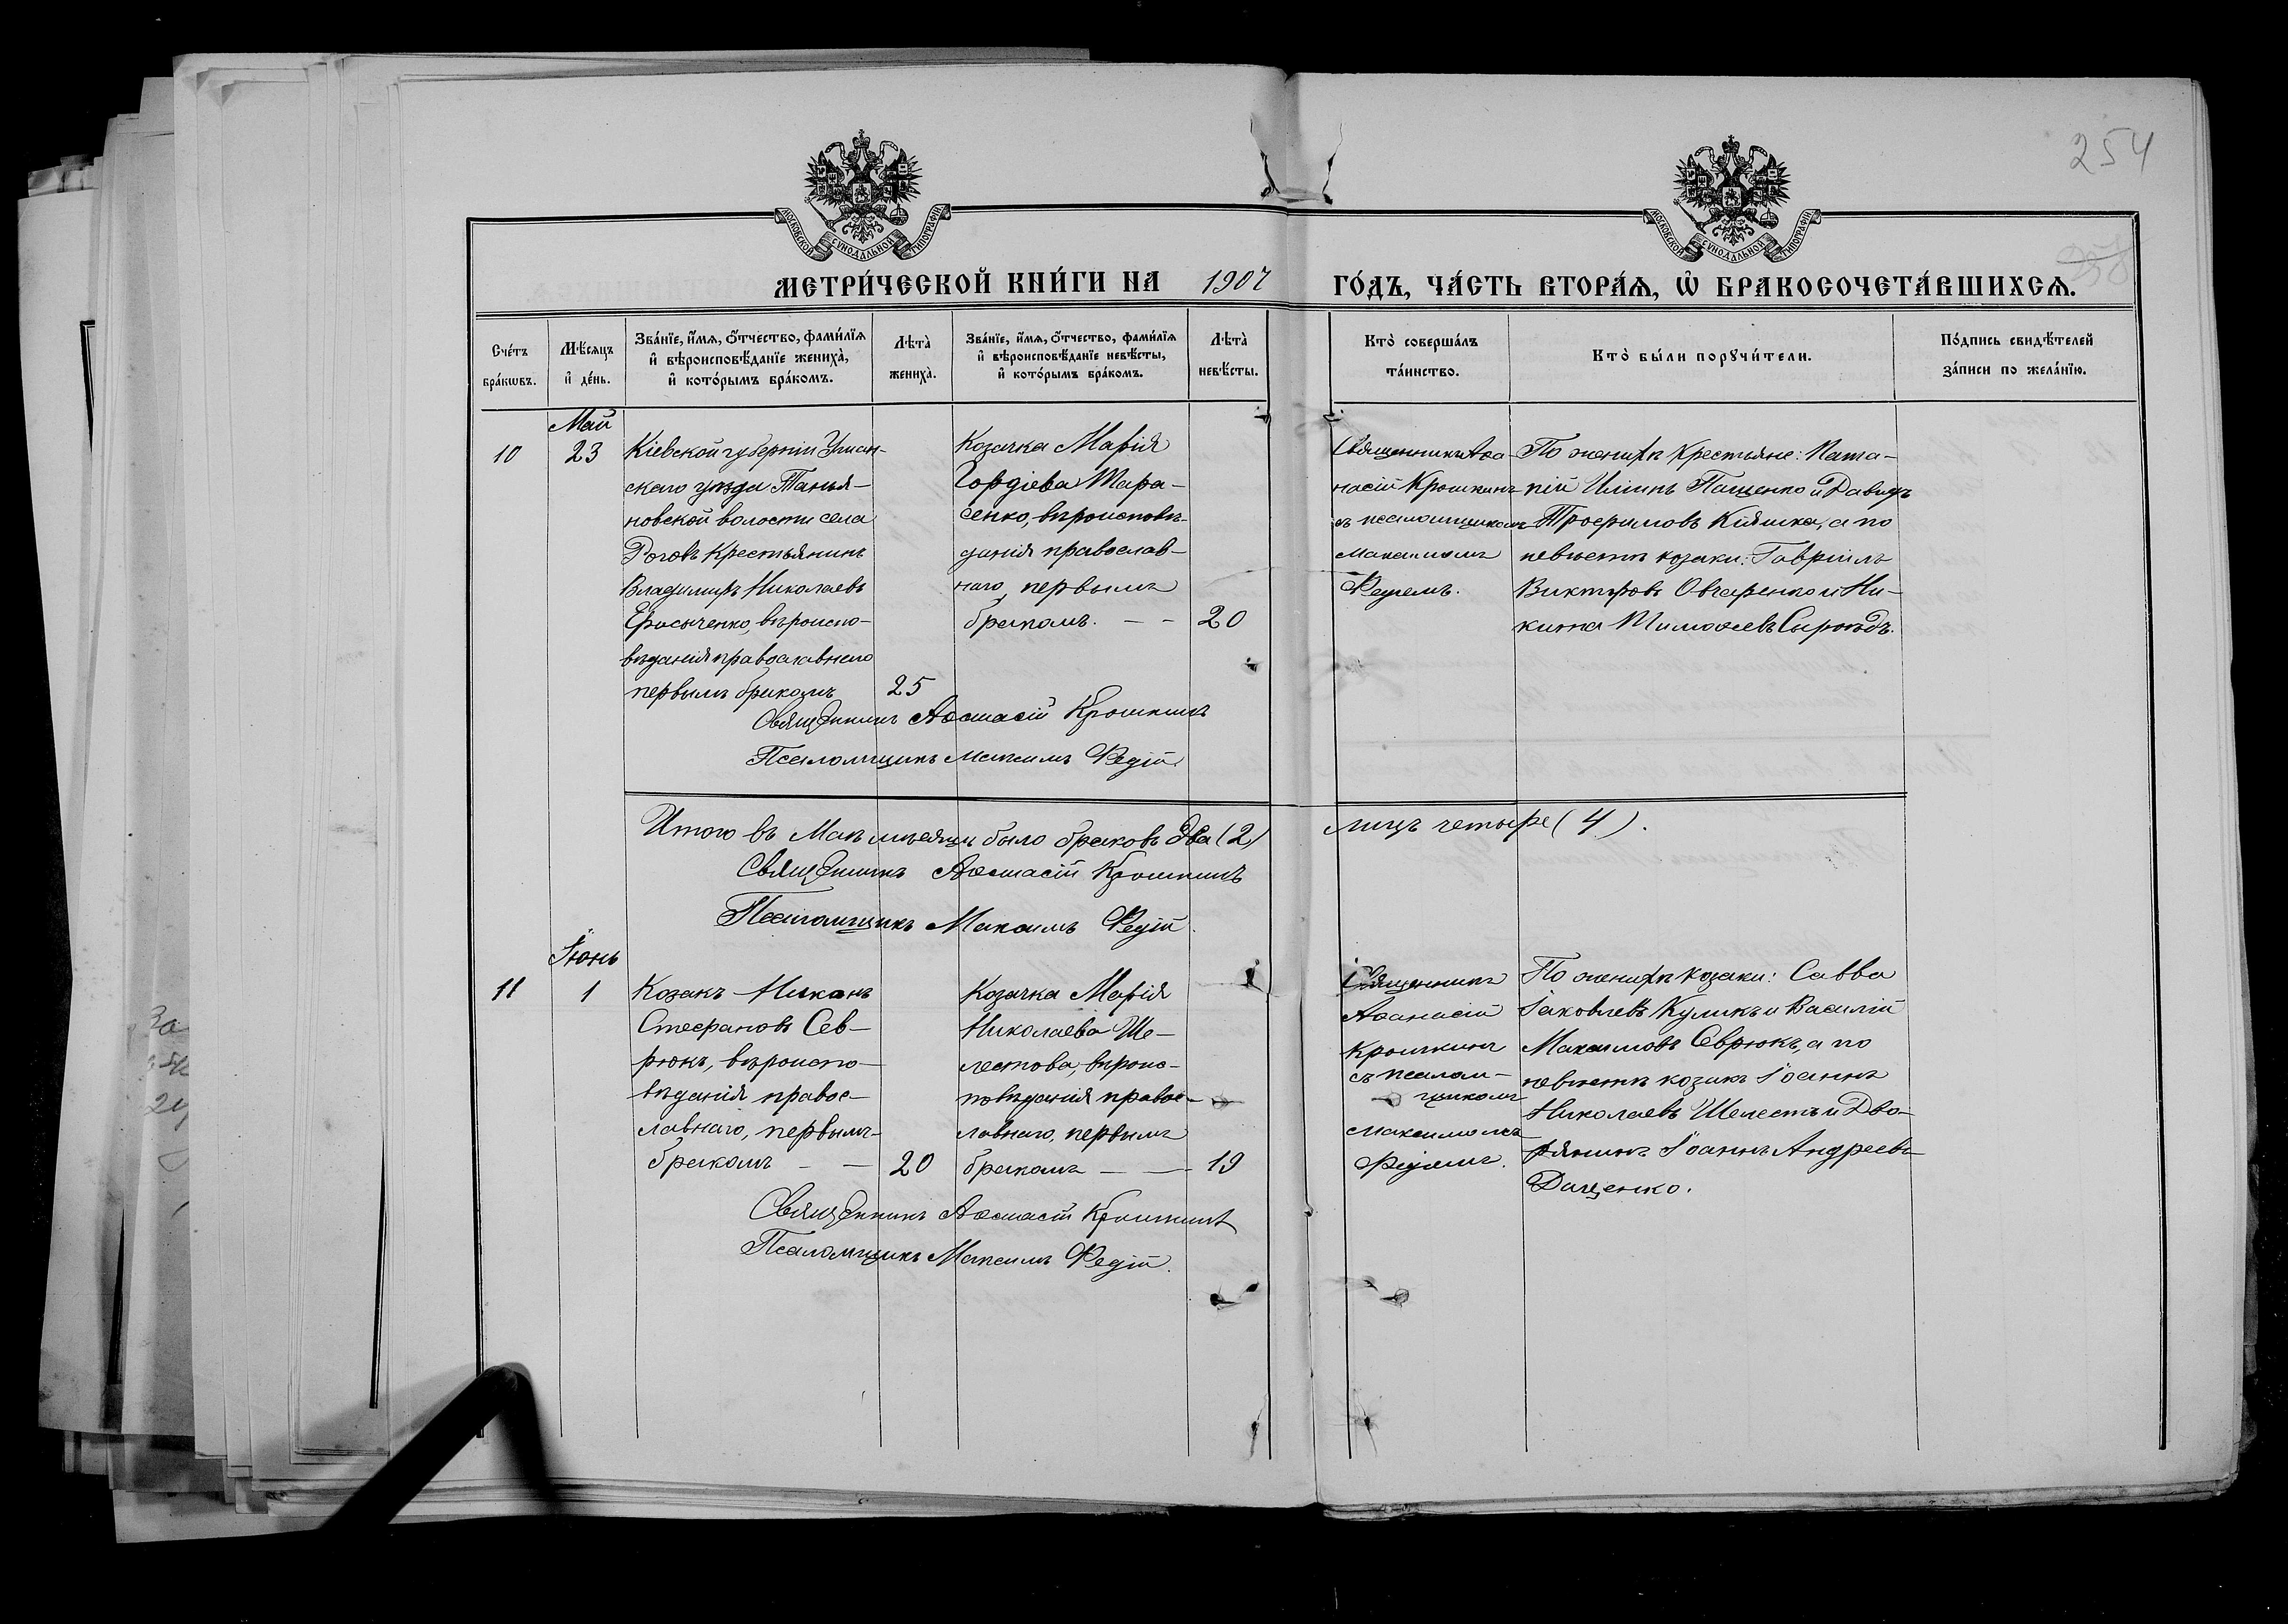 254
МОСКОВСКОЙ СѴНОДАЛЬНОЙ ТИПОГРАФІИ
МОСКОВСКОЙ СѴНОДАЛЬНОЙ ТИПОГРАФІИ
МЕТРИ́ЧЕСКОЙ КНИ́ГИ НА 1907 ГО́ДЪ, ЧА́СТЬ ВТОРА́Ѧ, Ѡ҆ БРАКОСОЧЕТА́ВШИХСѦ.
Сче́тъ
бра́кѡвъ.
Мѣ́сяцъ
и҆ де́нь.
Зва́нїе, и҆́мѧ, о҆́тчество, фами́лїѧ
и҆ вѣроисповѣ́данїе жениха̀,
и҆ кото́рымъ бра́комъ.
Лѣта̀
жениха̀.
Зва́нїе, и҆́мѧ, о҆́тчество, фами́лїѧ
и҆ вѣроисповѣ́данїе невѣ́сты,
и҆ кото́рымъ бра́комъ.
Лѣта̀
невѣ́сты.
Кто̀ соверша́лъ
та́инство.
Кто̀ бы́ли порꙋчи́тели.
По́дпись свидѣ́телей
за́писи по жела́нїю.
10
Май
23
Кіевской губерніи Уман-
скаго уѣзда Танья-
новской волости села
Роговъ крестьянинъ
Владимиръ Николаевъ
вѣроиспо-
вѣданія православнаго
первымъ бракомъ
25
Козачка Марія
Гордіева Тара-
сенко, вѣроисповѣ-
данія православ-
наго, первымъ
бракомъ. — —
20
Священникъ Аѳа-
насій Крошкинъ
съ псаломщикомъ
Максимомъ
Редіемъ.
По женихѣ крестьяне:
Пащенко и Давидъ
Трофимовъ Кіяшка, а по
невѣстѣ козаки: Гавріилъ
Викторовъ Овчаренко и Ни-
кита Тимоѳеевъ Сыроѣдъ.
Священникъ Аѳанасій Крошкинъ
Псаломщикъ Максимъ Редій
Итого въ Маѣ мѣсяцѣ было браковъ два (2) лицъ четыре (4).
Священникъ Аѳанасій Крошкинъ
Псаломщикъ Максимъ Редій.
11
Іюнь
1
Козакъ Никонъ
Стефановъ Сев-
рюкъ, вѣроиспо-
вѣданія правос-
лавнаго, первымъ
бракомъ — —
20
Козачка Марія
Николаева Ше-
лестова, вѣроис-
повѣданія правос-
лавнаго, первымъ
бракомъ — —
19
Священникъ
Аѳанасій
Крошкинъ
съ псалом-
щикомъ
Максимомъ
Редіемъ.
По женихѣ козаки: Савва
Іаковлевъ Куликъ и Василій
Максимовъ Севрюкъ, а по
невѣстѣ козакъ Іоаннъ
Николаевъ Шелестъ и Дво-
рянинъ Іоаннъ Андреевъ
Дащенко.
Священникъ Аѳанасій Крошкинъ
Псаломщикъ Максимъ Редій.